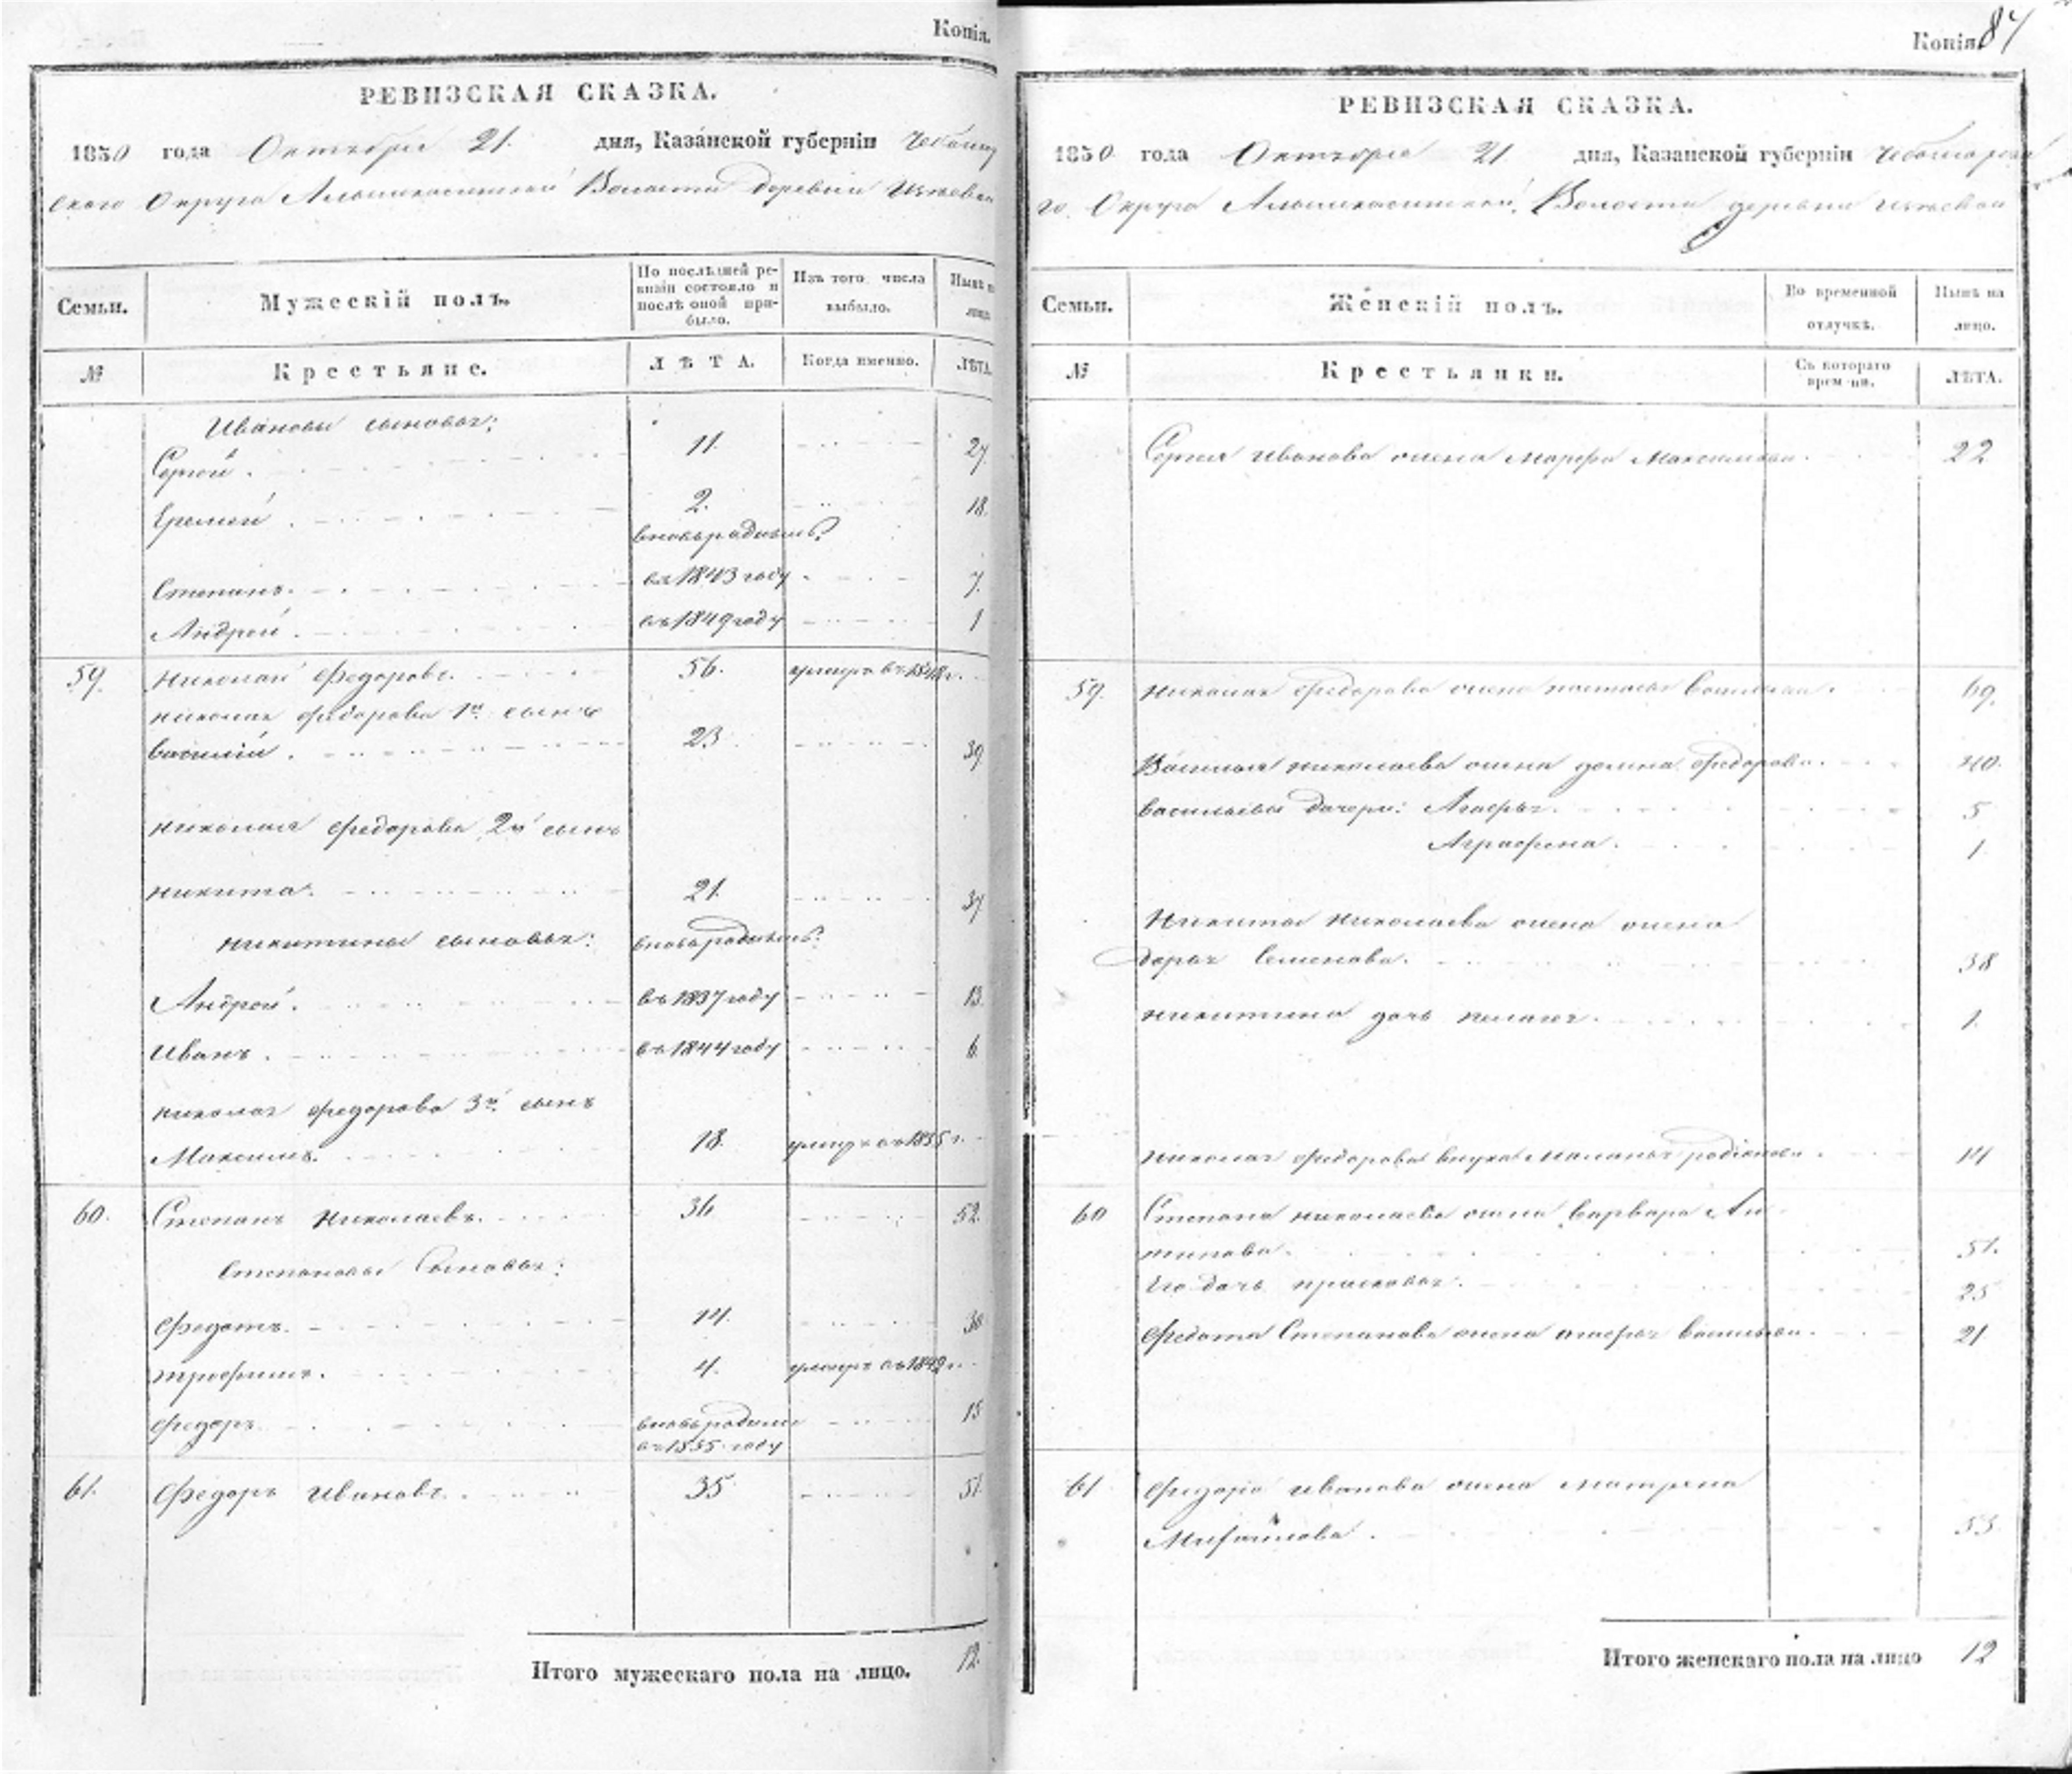 Копія.
РЕВИЗСКАЯ СКАЗКА.
1850 года Октября 21. дня, Казанской губерніи Чебокар
скаго Округа Волости деревни
Семьи. Мужескій полъ. По послѣдней ревизіи состояло и послѣ оной прибыло. Изъ того числа выбыло. Нынѣ на лицо.
№ Крестьяне. ЛѢТА. Когда именно. ЛѢТА.
Ивановы сыновья:
Сергей. 11. 27.
Еремей. 2. 18.
вновь рожденъ?
Степанъ. въ 1843 году 7.
Андрей. въ 1849 году 1
59. Николай Федоровъ. 56. умеръ въ 1848 г.
Николая Федорова 1й сынъ
Василій. 23. 39.
Николая Федорова 2й сынъ
Никита. 21. 37.
Никитины сыновья:
Андрей. въ 1837 году 13.
Иванъ. въ 1844 году 6.
Николая Федорова 3й сынъ
Максимъ. 18. умеръ въ 1835 г.
60. Степанъ Николаевъ. 36 52.
Степановы Сыновья:
Федотъ. 14. 30
Трофимъ. 4. умеръ въ 1842 г.
Федоръ. 15
въ 1835 году
61. Федоръ Ивановъ. 35. 51.
Итого мужескаго пола на лицо. 12.
Копія. 87
РЕВИЗСКАЯ СКАЗКА.
1850 года Октября 21. дня, Казанской губерніи Чебоксарска
го Округа Волости деревни
Семьи. Женскій полъ. Во временной отлучкѣ. Нынѣ на лицо.
№ Крестьянки. Съ котораго времени. ЛѢТА.
Сергея Иванова жена Марфа Максимова. 22
59. Николая Федорова жена Настасья Васильева. 69.
Василья Николаева жена Федорова. 40.
Васильевы дочери: Агафья. 5
Аграфена. 1.
Никиты Николаева жена жена
Дарья Семенова. 38
Никитина дочь Пелагея. 1.
Николая Федорова внука Маланья Родионова. 14
60 Степана Николаева жена Варвара Ан
типова. 51.
Его дочь Прасковья. 25
Федота Степанова жена Агафья Васильева. 21
61 Федора Иванова жена Матрена
Михайлова. 53
Итого женскаго пола на лицо 12